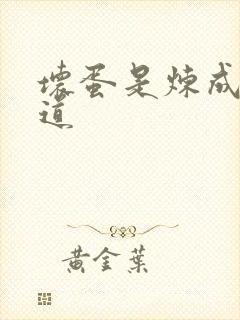 壞蛋是煉成
道
黃金葉